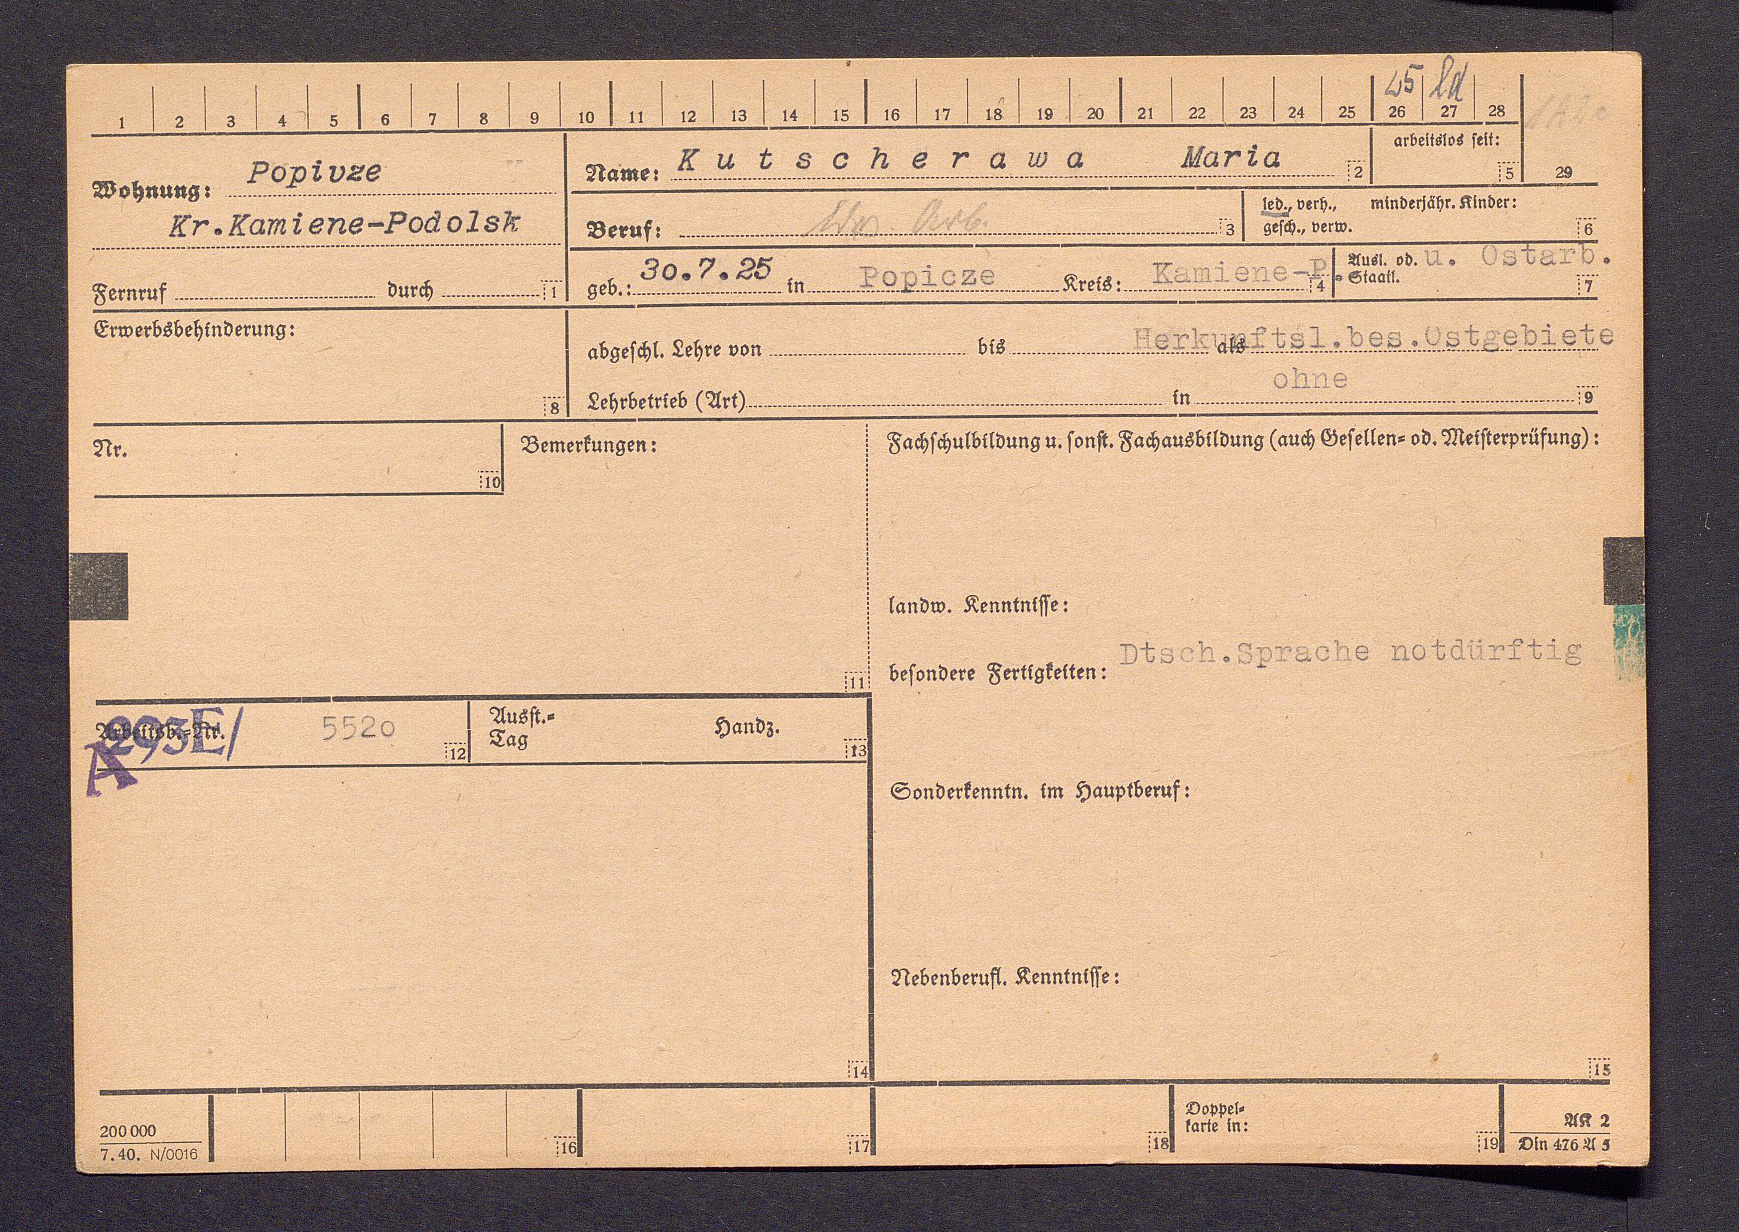 25 ld
1 2 3 4 5 6 7 8 9 10 11 12 13 14 15 16 17 18 19 20 21 22 23 24 25 26 27 28
29
Wohnung: Popivze
Kr.Kamiene-Podolsk
Fernruf durch 1
Name: Kutscherawa Maria 2
arbeitslos seit: 5
Beruf: Arb. 3
led., verh., gesch., verw.
minderjähr. Kinder: 6
geb.: 30.7.25 in Popicze Kreis: Kamiene-P. 4
Ausl. od. Staatl. u. Ostarb. 7
Erwerbsbehinderung: 8
Herkunftsl.bes.Ostgebiete
abgeschl. Lehre von bis als
ohne
Lehrbetrieb (Art) in 9
Nr. 10
Bemerkungen: 11
Fachschulbildung u. sonst. Fachausbildung (auch Gesellen- od. Meisterprüfung):
landw. Kenntnisse:
besondere Fertigkeiten: Dtsch.Sprache notdürftig
Arbeitsb.-Nr. A 293E/ 5520 12
Ausst.-
Tag
Handz. 13
Sonderkenntn. im Hauptberuf:
Nebenberufl. Kenntnisse:
14
15
200 000
7. 40. N/0016
16
17
18
Doppel-
karte in: 19
AK 2
Din 476 A 5